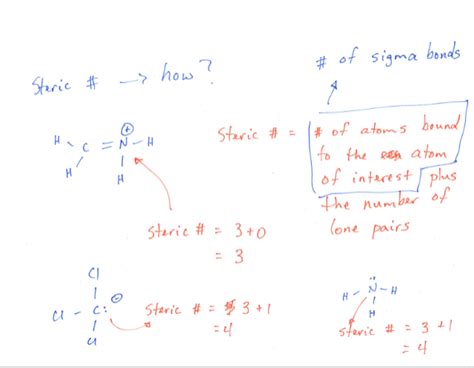 # of sigma bonds
Steric # → how?
Steric # = # of atoms bound
to the atom
of interest plus
the number of
lone pairs
H C = N⊕ - H
H H
Steric # = 3+0
= 3
Cl
Cl - C:⊖
Cl
Steric # = 3+1
= 4
H - N̈ - H
H
steric # = 3+1
= 4